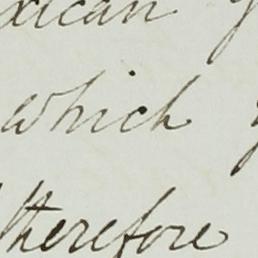 xican
which
therefore